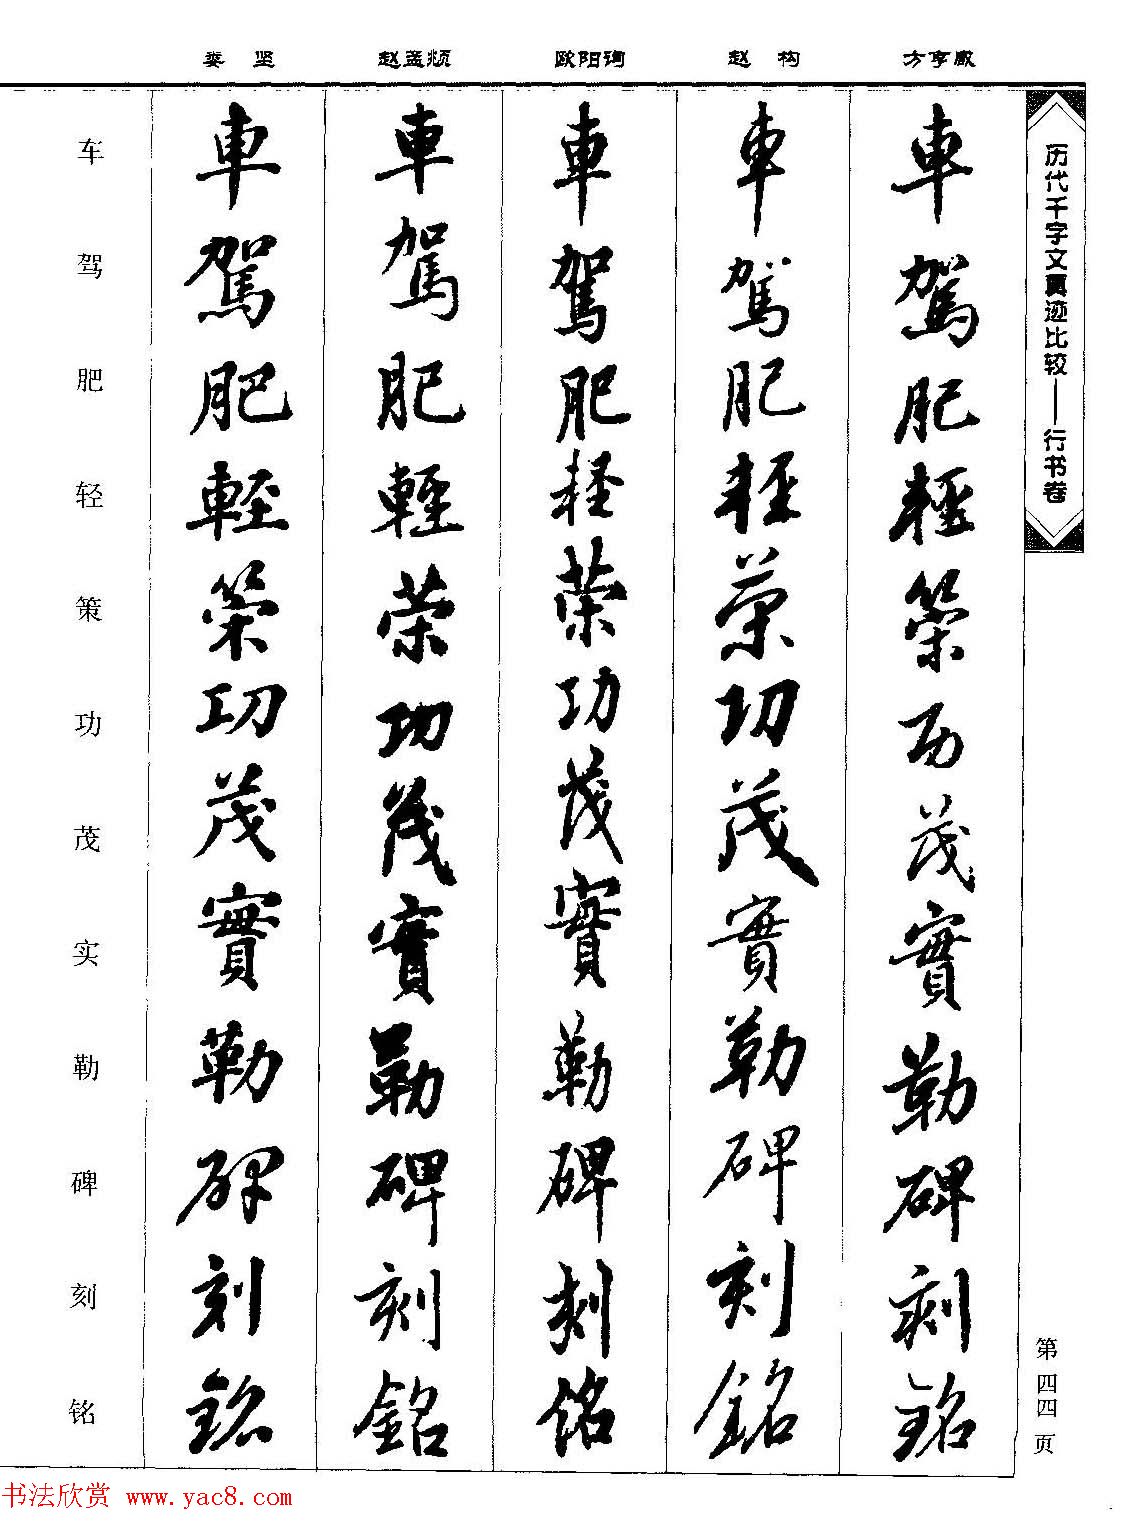 历代千字文真迹比较——行书卷
第四四页
方亨咸
車駕肥輕策功茂實勒碑刻銘
赵构
車駕肥輕策功茂實勒碑刻銘
欧阳询
車駕肥輕策功茂實勒碑刻銘
赵孟頫
車駕肥輕策功茂實勒碑刻銘
娄坚
車駕肥輕策功茂實勒碑刻銘
车驾肥轻策功茂实勒碑刻铭
书法欣赏 www.yac8.com